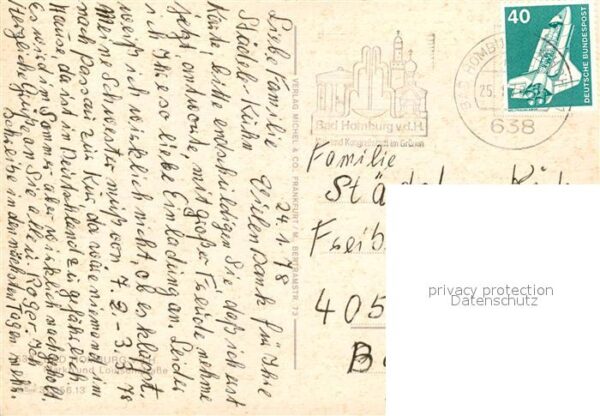 24.1.78
Liebe Familie
Städele-Kühn
Vielen Dank für Ihre
Karte, bitte entschuldigen Sie daß ich erst
jetzt antworte, mit großer Freude nehme
ich Ihre so liebe Einladung an. Leider
weiß ich wirklich nicht, ob es klappt.
Meine Schwester muß von 7.2-3.3.78
nach Passau zur Kur, da wäre niemand im
Hause, da ist in Deutschland zu gefährlich
Es wird im Sommer aber wirklich nachgeholt.
Herzliche Grüße an Sie alle u. Roger. Ich
schreibe in den nächsten Tagen mehr.
BAD HOMBURG
Louisenstraße
VERLAG MICHEL & CO. FRANKFURT/M. BERTRAMSTR. 73
Bad Homburg v.d.H.
und Kongreßstadt im Grünen
BAD HOMBURG
25.
638
40
DEUTSCHE BUNDESPOST
Familie
Städ
Freib
405
privacy protection
Datenschutz